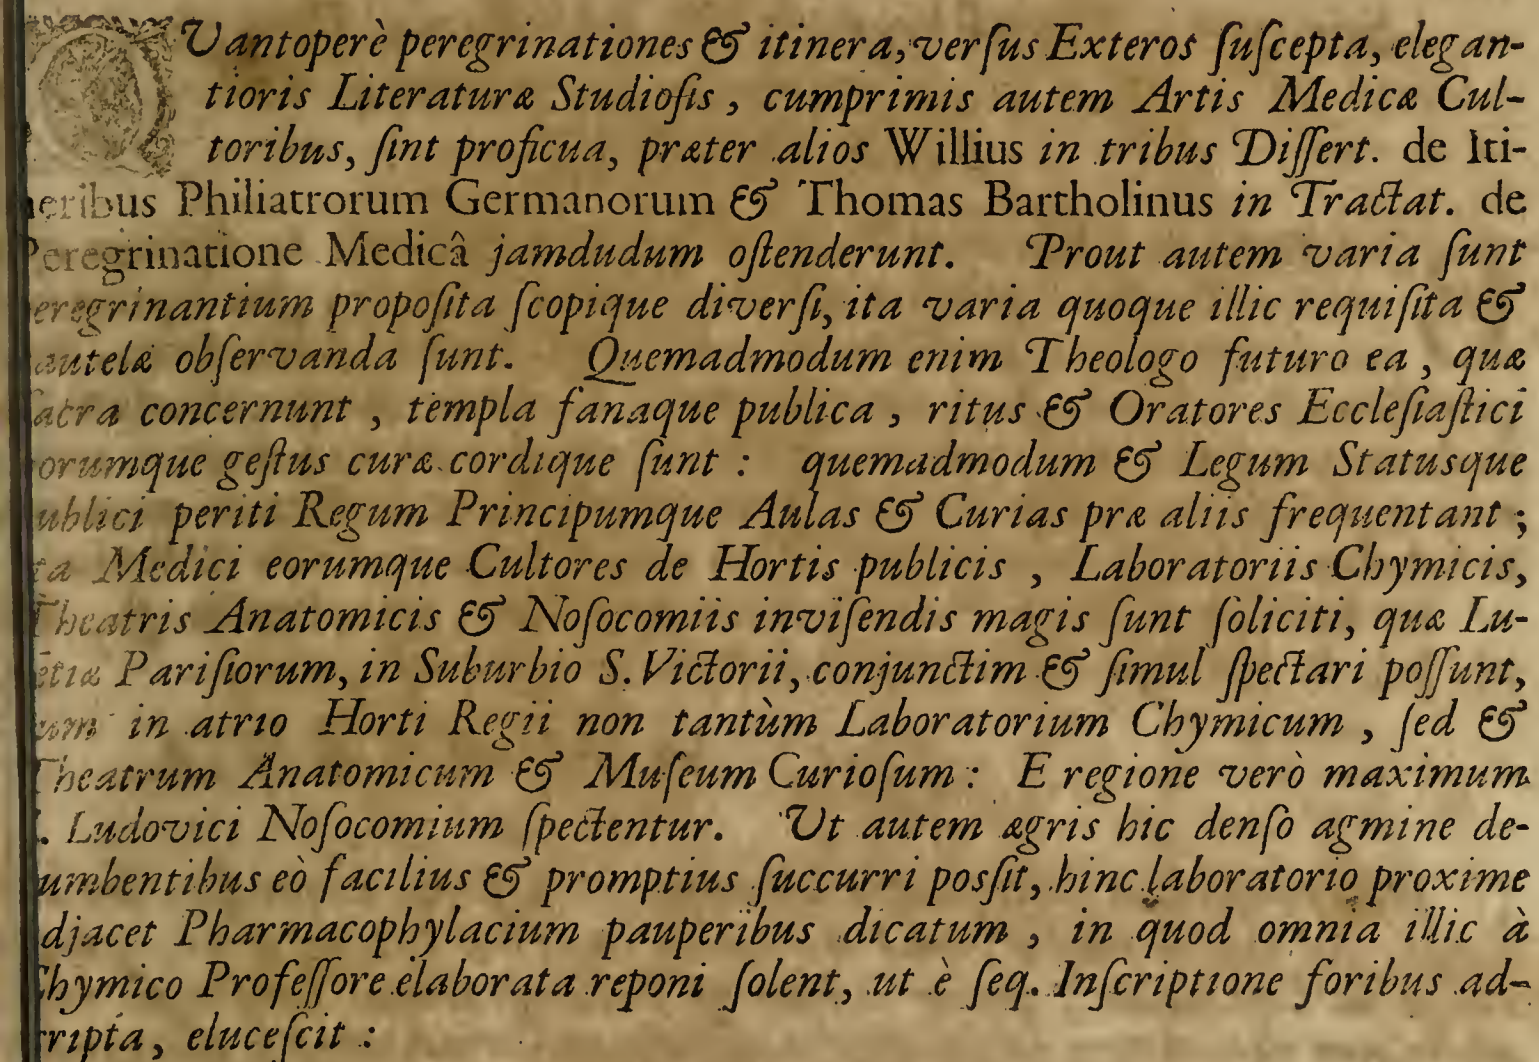 QVantoperè peregrinationes & itinera, versus Exteros suscepta, elegan-
tioris Literaturæ Studiosis, cumprimis autem Artis Medicæ Cul-
toribus, sint proficua, præter alios Willius in tribus Dissert. de Iti-
neribus Philiatrorum Germanorum & Thomas Bartholinus in Tractat. de
Peregrinatione Medicâ jamdudum ostenderunt. Prout autem varia sunt
peregrinantium proposita scopique diversi, ita varia quoque illic requisita &
cautelæ observanda sunt. Quemadmodum enim Theologo futuro ea, quæ
sacra concernunt, templa fanaque publica, ritus & Oratores Ecclesiastici
eorumque gestus curæ cordique sunt: quemadmodum & Legum Statusque
publici periti Regum Principumque Aulas & Curias præ aliis frequentant;
ita Medici eorumque Cultores de Hortis publicis, Laboratoriis Chymicis,
Theatris Anatomicis & Nosocomiis invisendis magis sunt soliciti, quæ Lu-
tetiæ Parisiorum, in Suburbio S. Victorii, conjunctim & simul spectari possunt,
cum in atrio Horti Regii non tantùm Laboratorium Chymicum, sed &
Theatrum Anatomicum & Museum Curiosum: E regione verò maximum
S. Ludovici Nosocomium spectentur. Ut autem ægris hic densò agmine de-
cumbentibus eò facilius & promptius succurri possit, hinc laboratorio proxime
adjacet Pharmacophylacium pauperibus dicatum, in quod omnia illic à
Chymico Professore elaborata reponi solent, ut è seq. Inscriptione foribus ad-
scripta, elucescit: